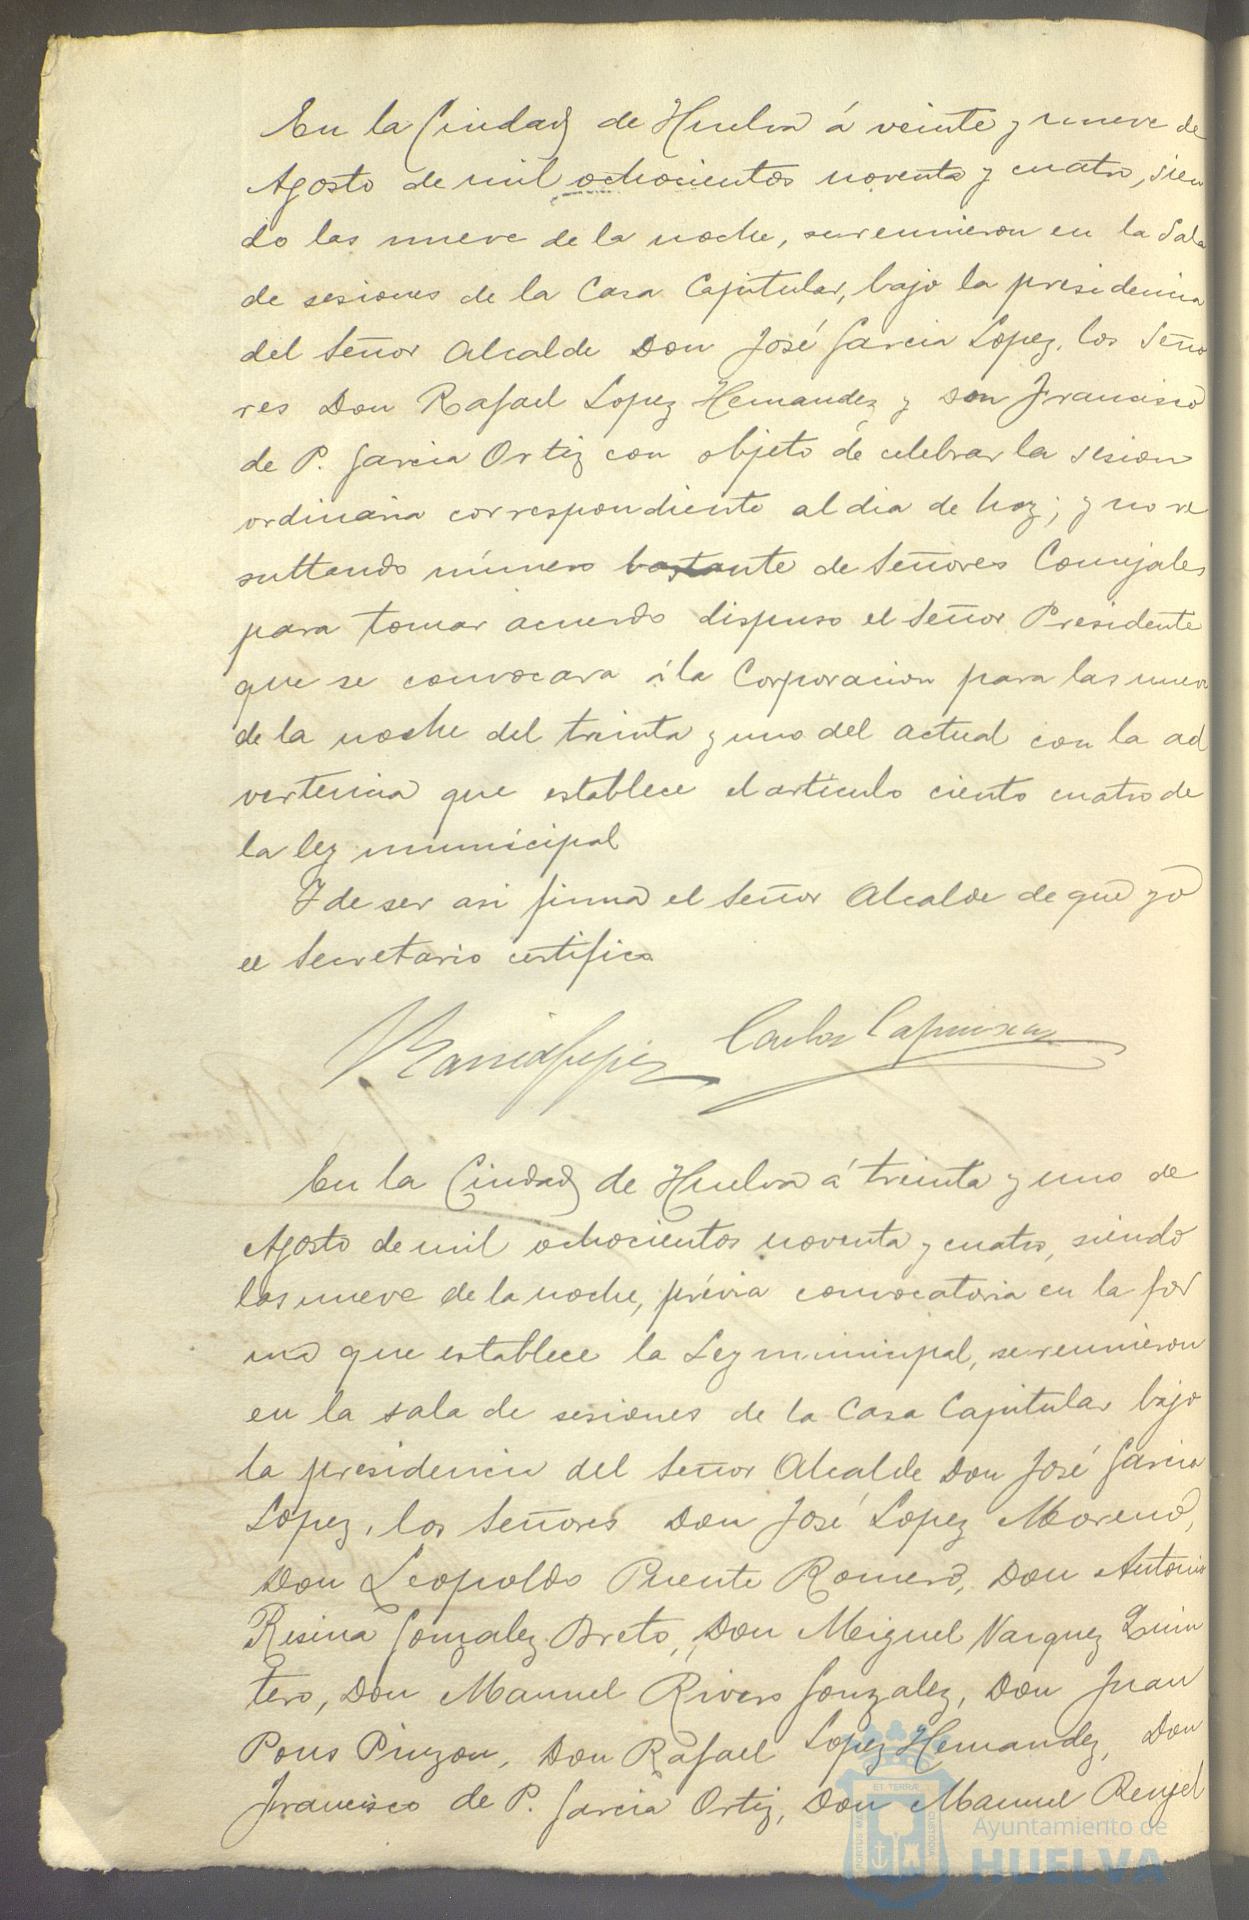 En la Ciudad de Huelva á veinte y nueve de
Agosto de mil ochocientos noventa y cuatro, sien
do las nueve de la noche, se reunieron en la Sala
de sesiones de la Casa Capitular, bajo la presidencia
del Señor Alcalde Don José Garcia Lopez, los Seño
res Don Rafael Lopez Hernandez y Don Francisco
de P. Garcia Ortiz con objeto de celebrar la sesion
ordinaria correspondiente al dia de hoy; y no re
sultando número bastante de Señores Concejales
para tomar acuerdo dispuso el Señor Presidente
que se convocara á la Corporacion para las nueve
de la noche del treinta y uno del actual con la ad
vertencia que establece el articulo ciento cuatro de
la ley municipal
Y de ser asi firma el Señor Alcalde de que yo
el Secretario certifico
Carlos
En la Ciudad de Huelva á treinta y uno de
Agosto de mil ochocientos noventa y cuatro, siendo
las nueve de la noche, prévia convocatoria en la for
ma que establece la Ley municipal, se reunieron
en la sala de sesiones de la Casa Capitular bajo
la presidencia del Señor Alcalde Don José Garcia
Lopez, los Señores Don José Lopez Moreno,
Don Leopoldo Puente Romero, Don Antonio
Resina Gonzalez Breto, Don Miguel Vazquez Quin
tero, Don Manuel Rivero Gonzalez, Don Juan
Pons Pinzon, Don Rafael Lopez Hernandez, Don
Francisco de P. Garcia Ortiz, Don Manuel Rengel
Ayuntamiento de
HUELVA